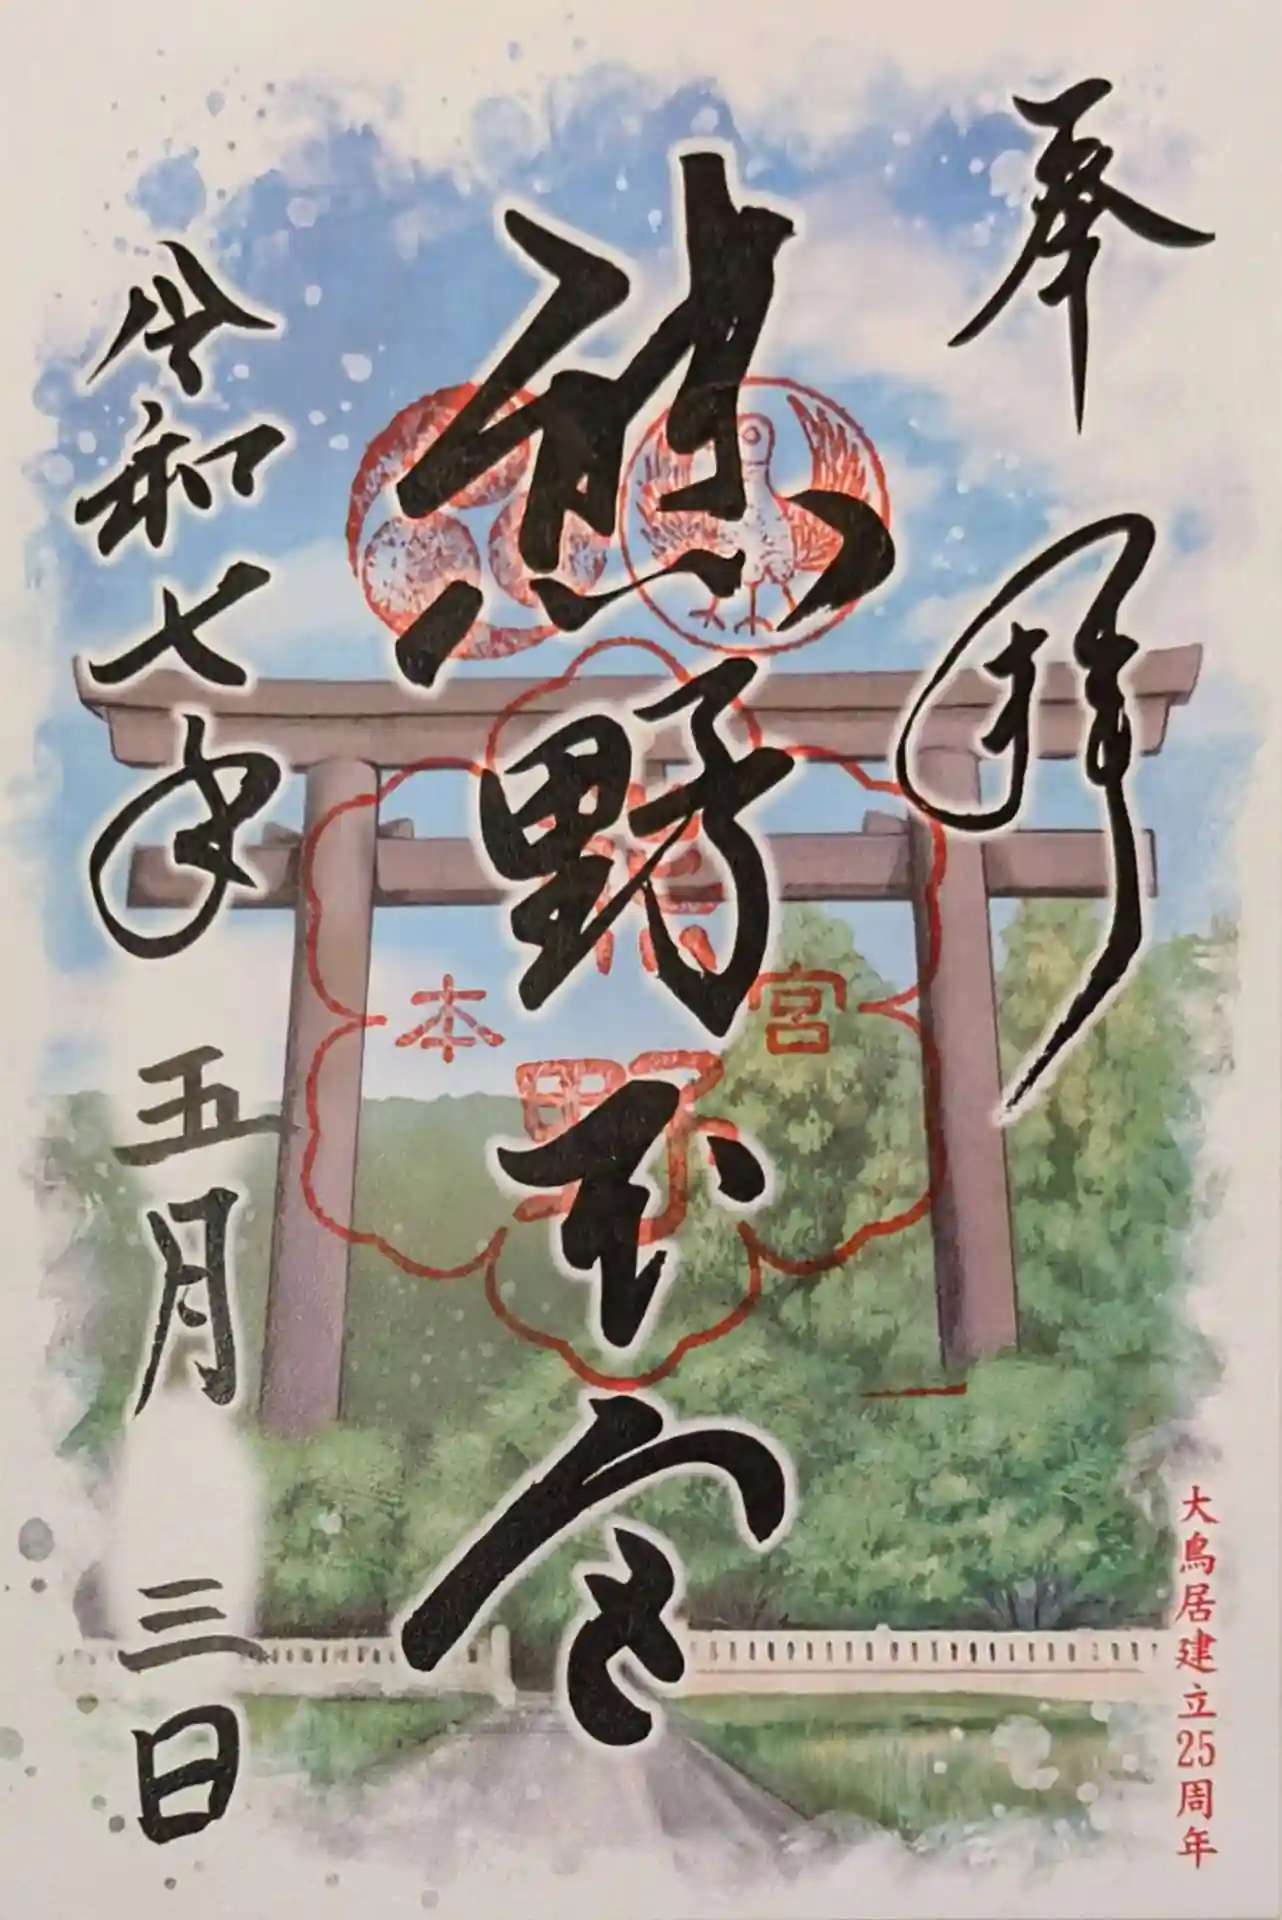 奉拝
大鳥居建立25周年
熊野本宮
熊野
本宮
令和七年五月三日